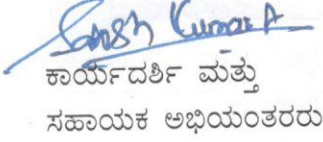 Kumar A
ಕಾರ್ಯದರ್ಶಿ ಮತ್ತು
ಸಹಾಯಕ ಅಭಿಯಂತರರು